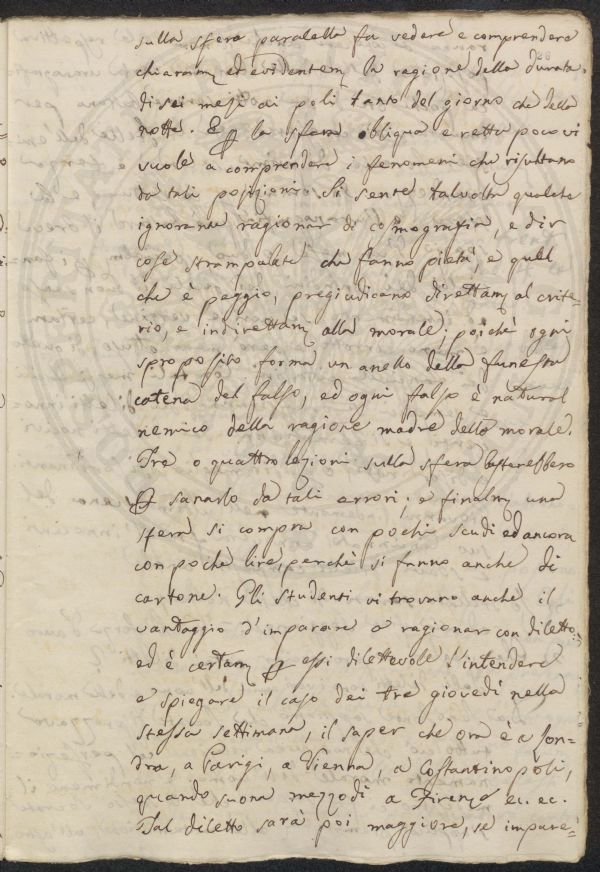 sulla sfera paralella fa vedere e comprendere
28
chiaram ed evidentem la ragione della durata
di sei mesi ai poli tanto del giorno che della
notte. E la sfera obliqua e retta poco vi
vuole a comprendere i fenomeni che risultano
da tali posizioni. Si sente talvolta qualche
ignorante ragionar di cosmografia, e dir
cose strampalate che fanno pietà, e quel
che è peggio, pregiudicano direttam al crite-
rio, e indirettam alla morale; poichè ogni
sproposito forma un anello della funesta
catena del falso, ed ogni falso è natural
nemico della ragione madre della morale.
Tre o quattro lezioni sulla sfera basterebbero
sanarlo da tali errori; e finalm una
sfera si compra con pochi scudi ed ancora
con poche lire, perchè si fanno anche di
cartone. Gli studenti vi trovano anche il
vantaggio d'imparare a ragionar con diletto,
ed è certam essi dilettevole l'intendere
e spiegare il caso dei tre giovedì nella
stessa settimana, il saper che ora è a Lon-
dra, a Parigi, a Vienna, a Costantinopoli,
quando suona mezzodì a Firenze ec. ec.
Tal diletto sarà poi maggiore, se impare-